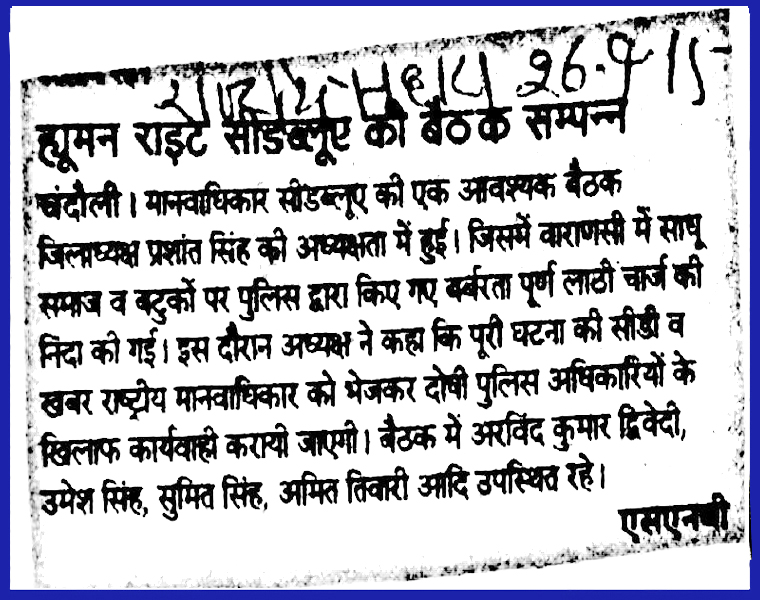 राष्ट्रीय सहारा 26.9.15
ह्यूमन राइट सीडब्लूए की बैठक सम्पन्न
चंदौली। मानवाधिकार सीडब्लूए की एक आवश्यक बैठक
जिलाध्यक्ष प्रशांत सिंह की अध्यक्षता में हुई। जिसमें वाराणसी में साधू
समाज व बटुकों पर पुलिस द्वारा किए गए बर्बरता पूर्ण लाठी चार्ज की
निंदा की गई। इस दौरान अध्यक्ष ने कहा कि पूरी घटना की सीडी व
खबर राष्ट्रीय मानवाधिकार को भेजकर दोषी पुलिस अधिकारियों के
खिलाफ कार्यवाही करायी जाएगी। बैठक में अरविंद कुमार द्विवेदी,
उमेश सिंह, सुमित सिंह, अमित तिवारी आदि उपस्थित रहे।
एसएनबी